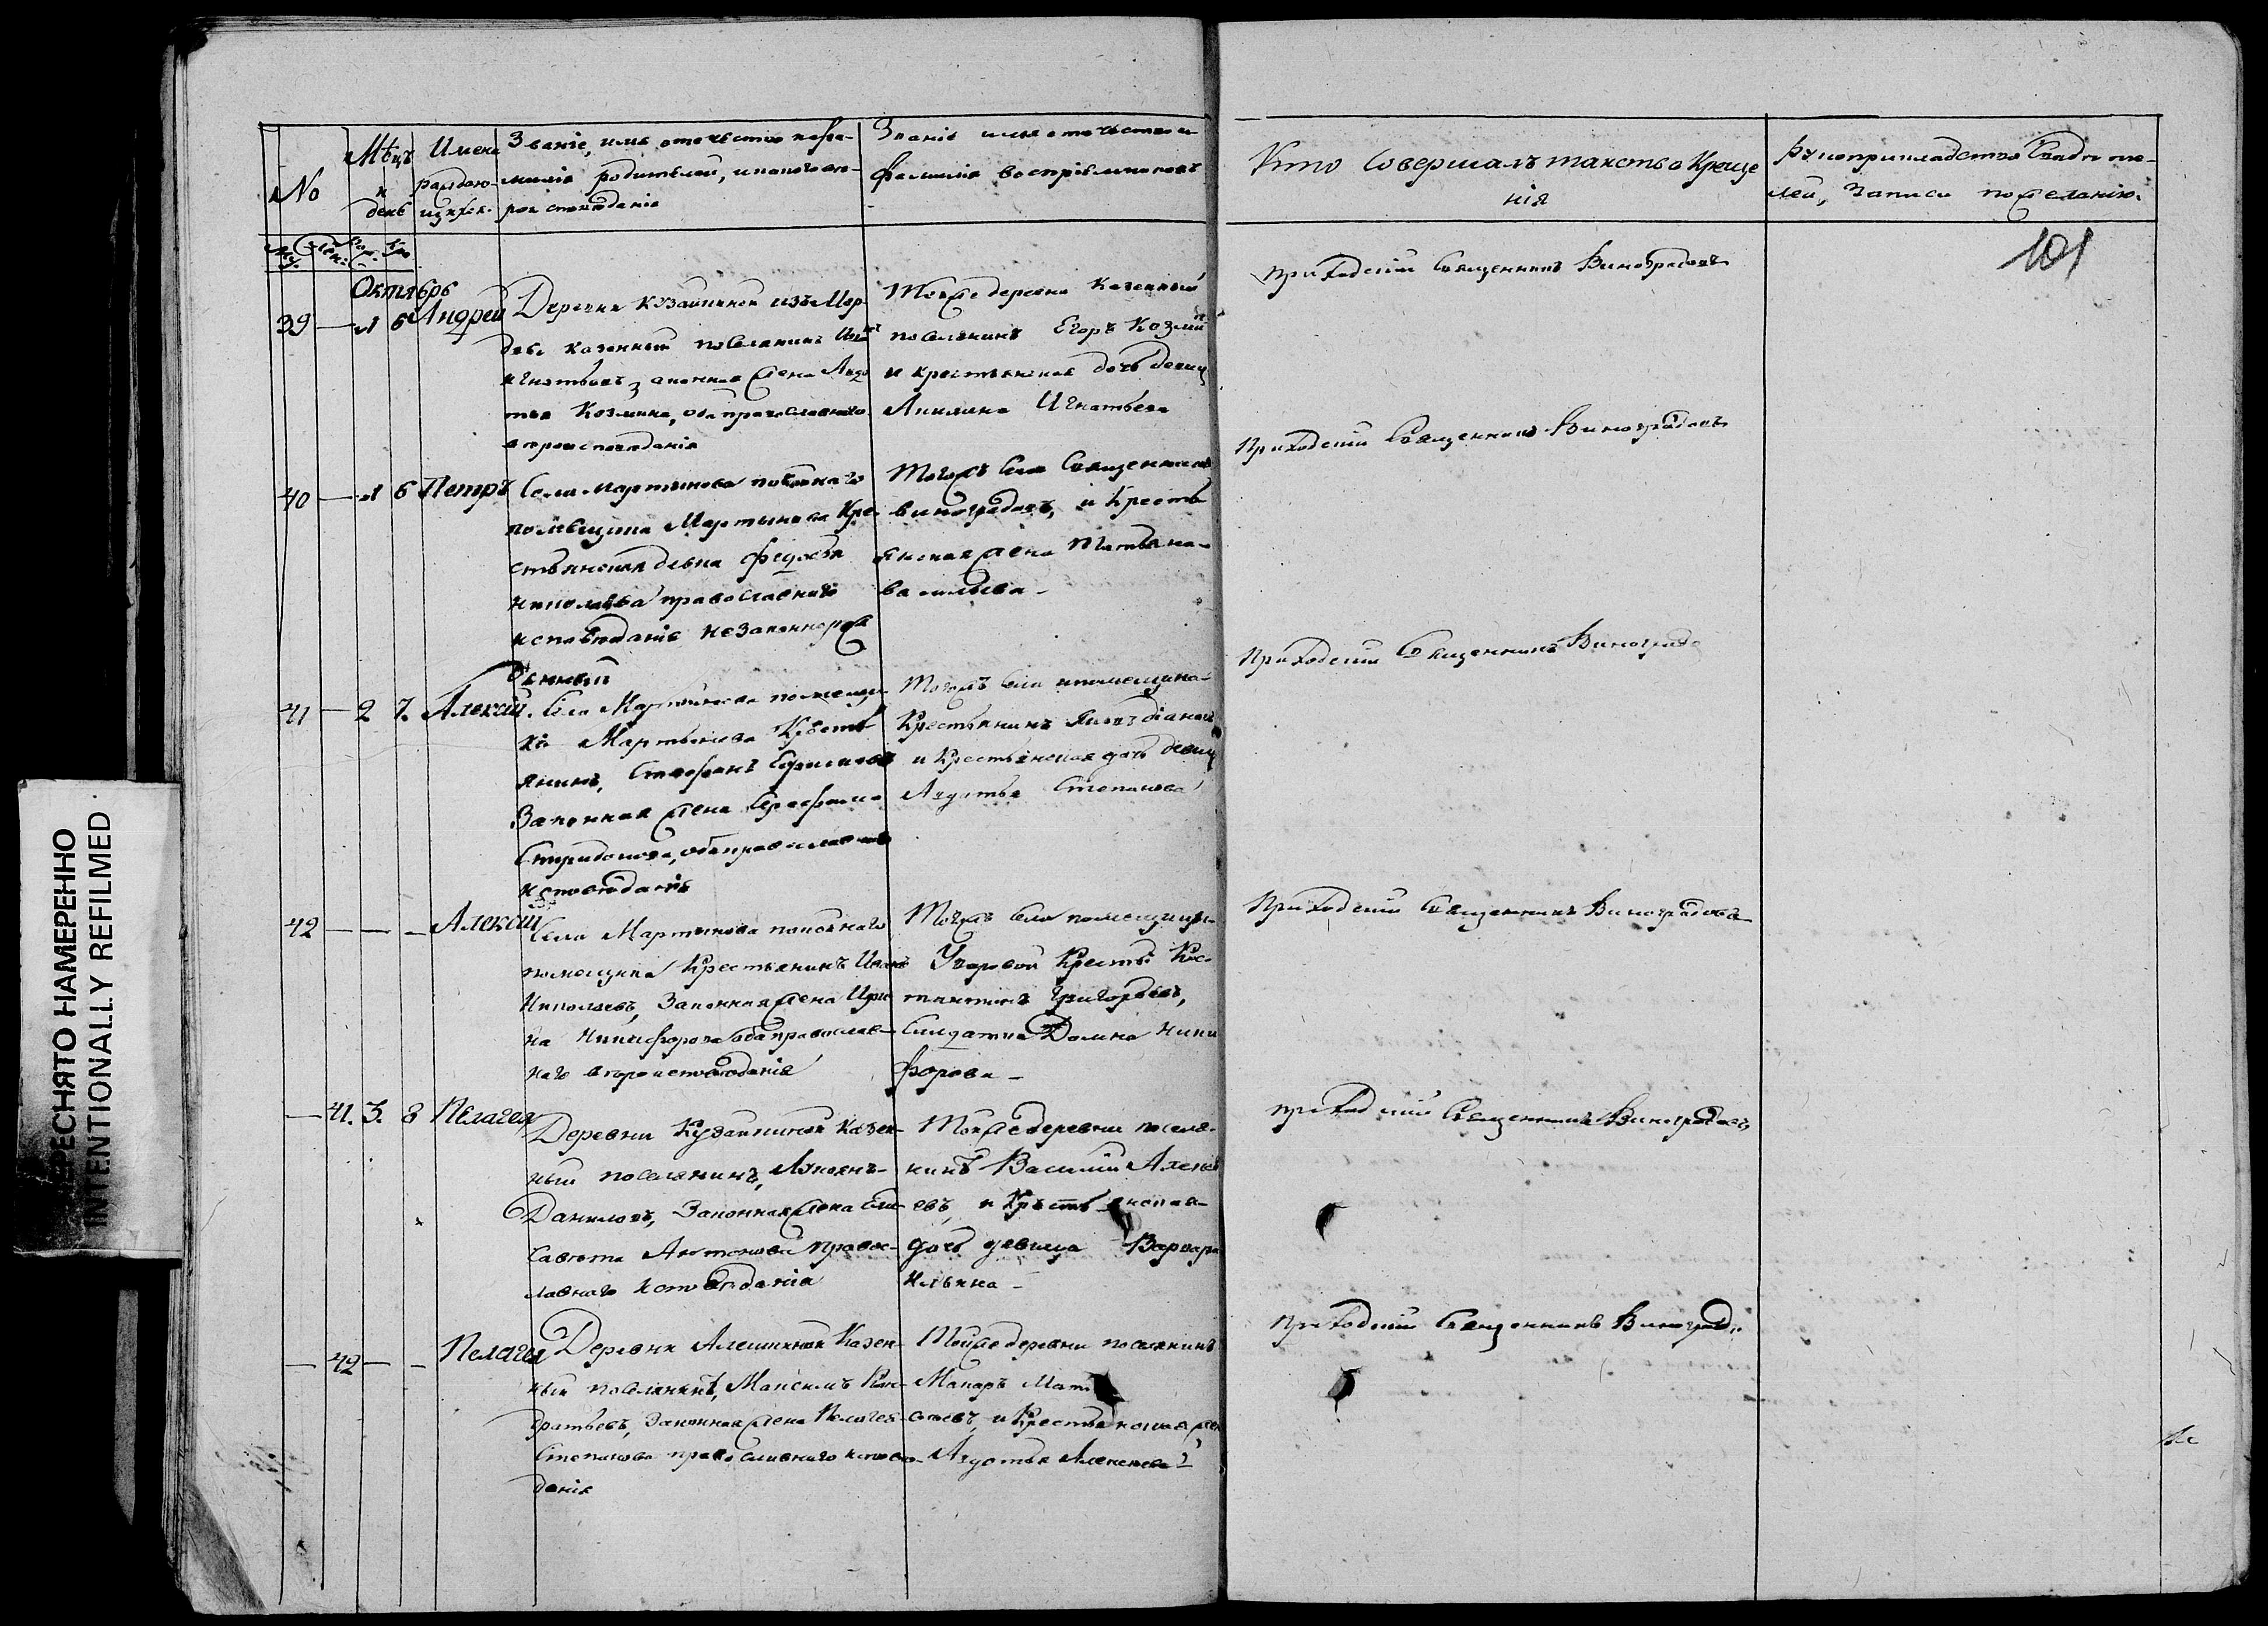 No
Мѣцъ и день
Имена раждающихся
Званіе, имя отечество и фамилія родителей, и какого вероисповѣданія
Званіе имя отечество и фамилія воспріемниковъ
Кто Совершалъ таинство Крещенія
Рукоприкладство Свидетелей, Записи по желанію.
101
Октябрь
39 — 1 6 Андрей
Деревни Кузайкиной изъ Мордвы казенный поселянинъ
Игнатьевъ, законная жена Авдотья Козмина, оба православнаго
вероисповеданія
Тойже деревни Казенный
поселянинъ Егоръ Козминъ
и крестьянская дочь девица
Акилина Игнатьева
Приходскій Священникъ Виноградовъ
40 — 1 6 Петръ
Села Мартынова покойнаго
помѣщика Мартынова Крестьянская девка Федосья
Николаева православнаго
исповѣданія незаконнорожденный
Тогожъ Села Священникъ
Виноградовъ, и Крестьянская жена Татьяна
Васильева
Приходскій Священникъ Виноградовъ
41 — 2 7. Алексѣй.
Села Мартынова помещика Мартынова Крестьянинъ, Стефанъ Ефимовъ
Законная жена
Спиридонова, оба православнаго
исповѣданія
Тогожъ села
Крестьянинъ
и Крестьянская дочь девица
Авдотья Степанова
Приходскій Священникъ Виноградо
42 — — — Алексѣй
Села Мартынова покойнаго
помещика Крестьянинъ Иванъ
Николаевъ, Законная жена Ирина Никифорова оба православнаго вероисповѣданія
Тогожъ Села помещицы
Уваровой Крестьян. Константинъ Григорьевъ,
Солдатка Домна Никифорова —
Приходскій Священникъ Виноградовъ
— 41. 3. 8 Пелагея
Деревни Кузайкиной Казенный поселянинъ, Лукьянъ
Даниловъ, Законная жена Елисавета Антонова православнаго исповѣданія
Тойже деревни поселянинъ Василій
и Крестьянская
дочь девица Варвара
Ильина —
приходскій Священникъ Виноградовъ
— 42 — — Пелагея
Деревни Алешкиной Казенный поселянинъ, Максимъ Кондратьевъ, Законная жена Пелагея
Степанова православнаго исповѣданія
Тойже деревни поселянинъ
Макаръ
и Крестьянская жена
Авдотья Алексеева
Приходскій Священникъ Виноград
ПЕРЕСНЯТО НАМЕРЕННО
INTENTIONALLY REFILMED